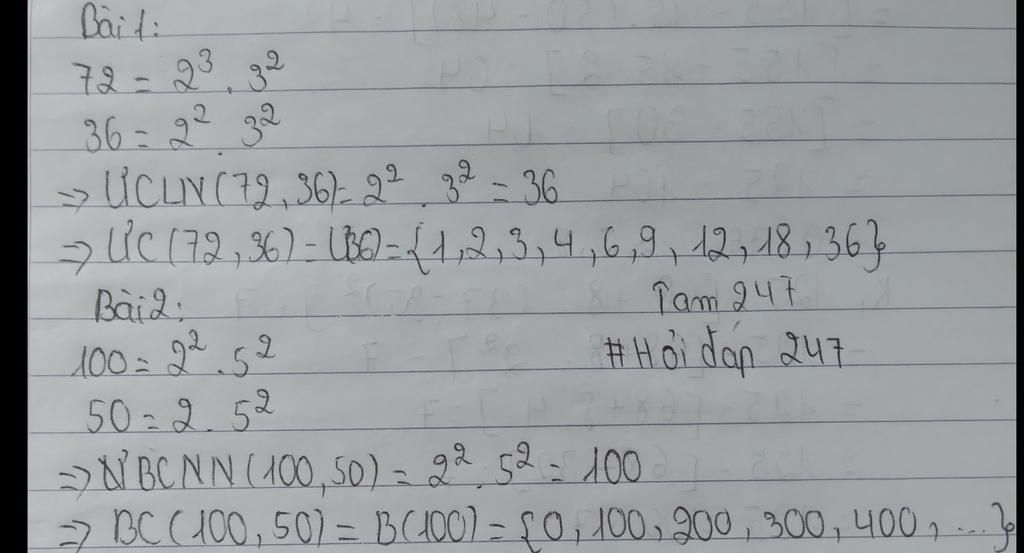 Bài 1:
72 = 2³ . 3²
36 = 2² . 3²
=> ƯCLN(72, 36) = 2² . 3² = 36
=> ƯC(72, 36) = Ư(36) = {1, 2, 3, 4, 6, 9, 12, 18, 36}
Bài 2: Tam 247
100 = 2² . 5² #Hỏi đáp 247
50 = 2 . 5²
=> BCNN(100, 50) = 2² . 5² = 100
=> BC(100, 50) = B(100) = {0, 100, 200, 300, 400, ...}